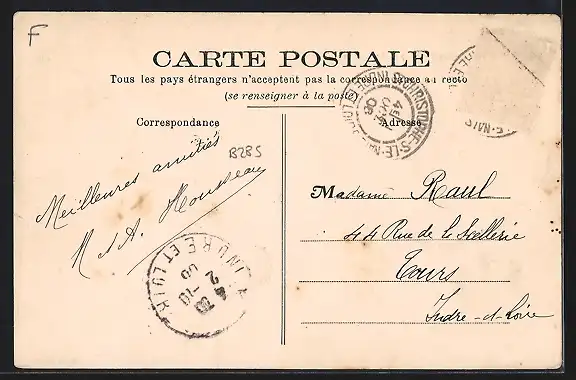 F
CARTE POSTALE
Tous les pays étrangers n'acceptent pas la correspondance au recto
(se renseigner à la poste)
Correspondance
Adresse
B285
Meilleures amitiés
M et A. Housseau
Madame Raul
44 Rue de la Scellerie
Tours
Indre-et-Loire
INDRE ET LOIRE